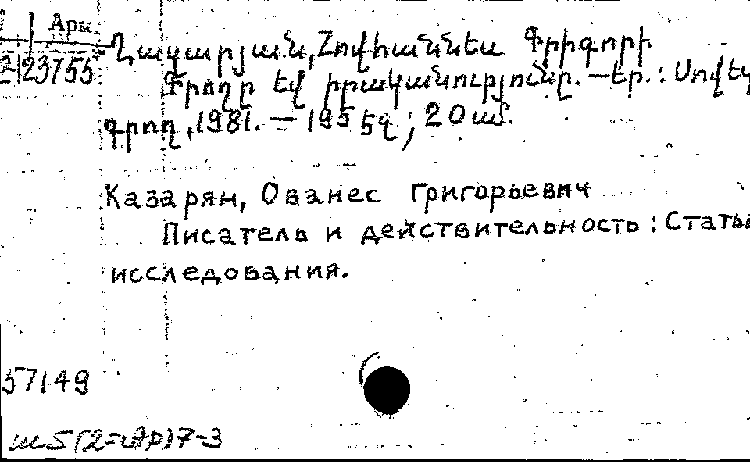 Арм.
2-23755
Ղազարյան, Հովհաննես Գրիգորի
Գրողը եվ իրականությունը. — Եր. : Սովետ
գրող, 1981. — 195 էջ ; 20 սմ.
Казарян, Ованес Григорьевич
Писатель и действительность : Статьи
исследования.
57149
ш5(2=Ар)7-3